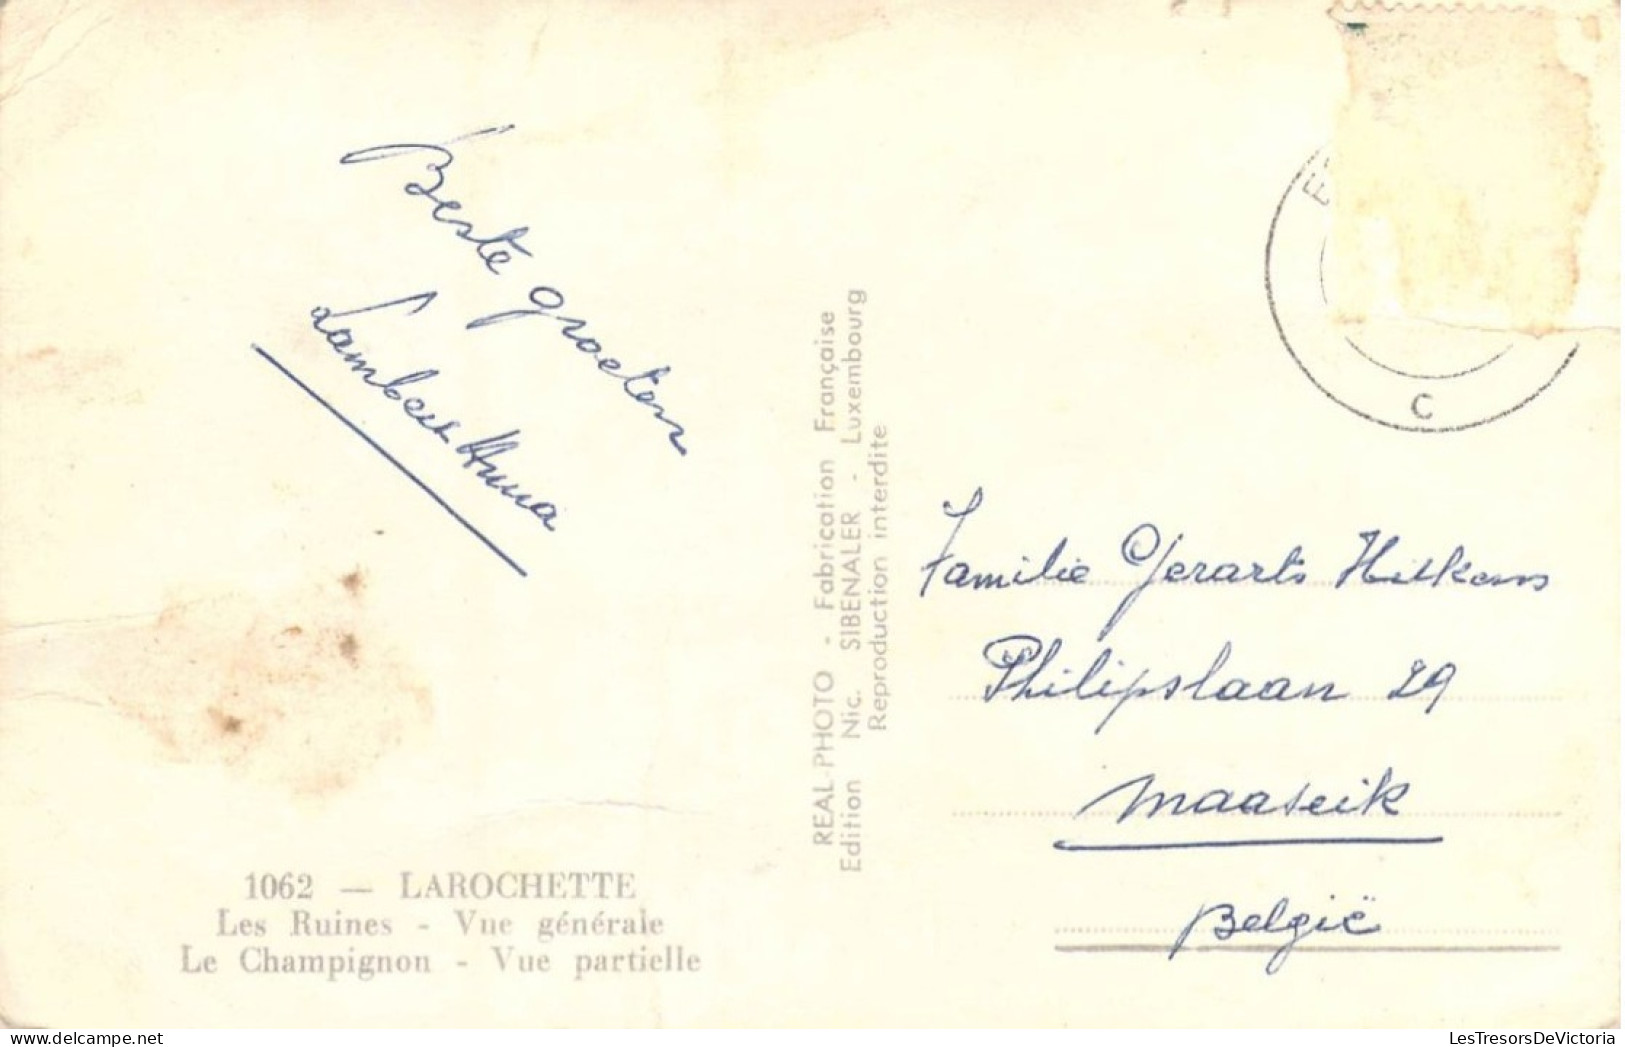 Beste groeten
Lambert Anna
REAL-PHOTO - Fabrication Française
Edition Nic. SIBENALER - Luxembourg
Reproduction interdite
E
C
Familie Gerarts
Philipslaan 29
Maaseik
België
1062 — LAROCHETTE
Les Ruines - Vue générale
Le Champignon - Vue partielle
LesTresorsDeVictoria